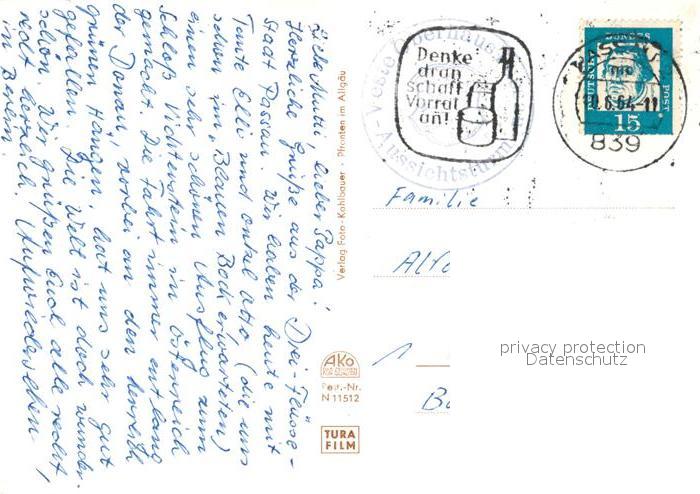 Liebe Mutti, lieber Pappa!
Herzliche Grüße aus der Drei Flüsse-
Stadt Passau. Wir haben heute mit
Tante Elli und Onkel Otto (die uns
schon im "Blauen Bock" erwarteten)
einen sehr schönen Ausflug zum
Schloß Lichtenstein in Österreich
gemacht. Die Fahrt immer entlang
der Donau, vorbei an den herrlich
grünen Hängen, hat uns sehr gut
gefallen. Die Welt ist doch wunder-
schön. Wir grüßen Euch alle recht,
recht herzlich. Aufwiedersehen
in Berlin.
Verlag Foto-Kohlbauer · Pfronten im Allgäu
AKO
Postk.-Nr.
N 11512
TURA
FILM
Veste Oberhaus
Aussichtsturm
Denke
dran
schaff
Vorrat
an!
PASSAU
.6.64-11
839
DEUTSCHE
BUNDES
POST
15
Familie
privacy protection
Datenschutz